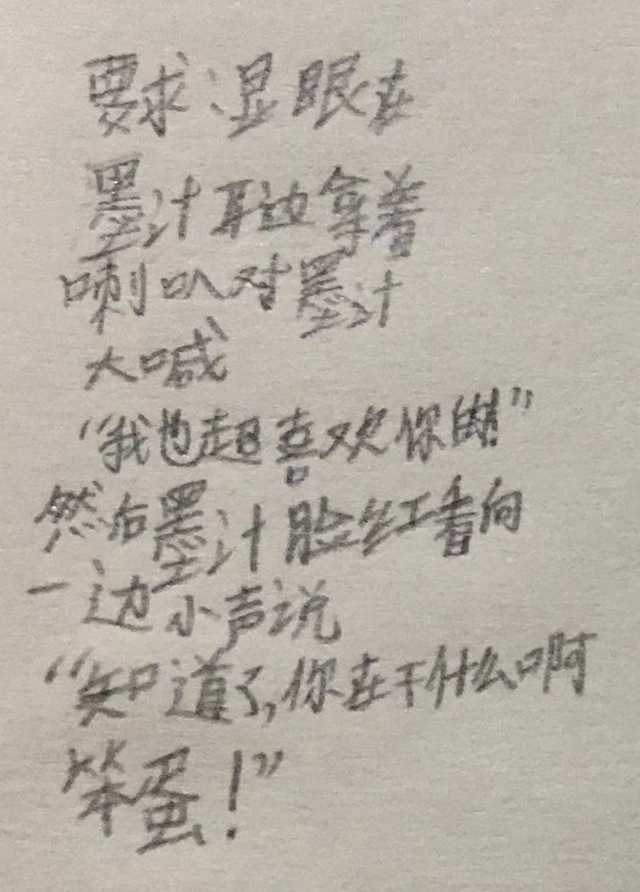 要求：显眼在
墨汁耳边拿着
喇叭对墨汁
大喊
“我也超喜欢你的！”
然后墨汁脸红看向
一边小声说
“知道了，你在干什么啊
笨蛋！”